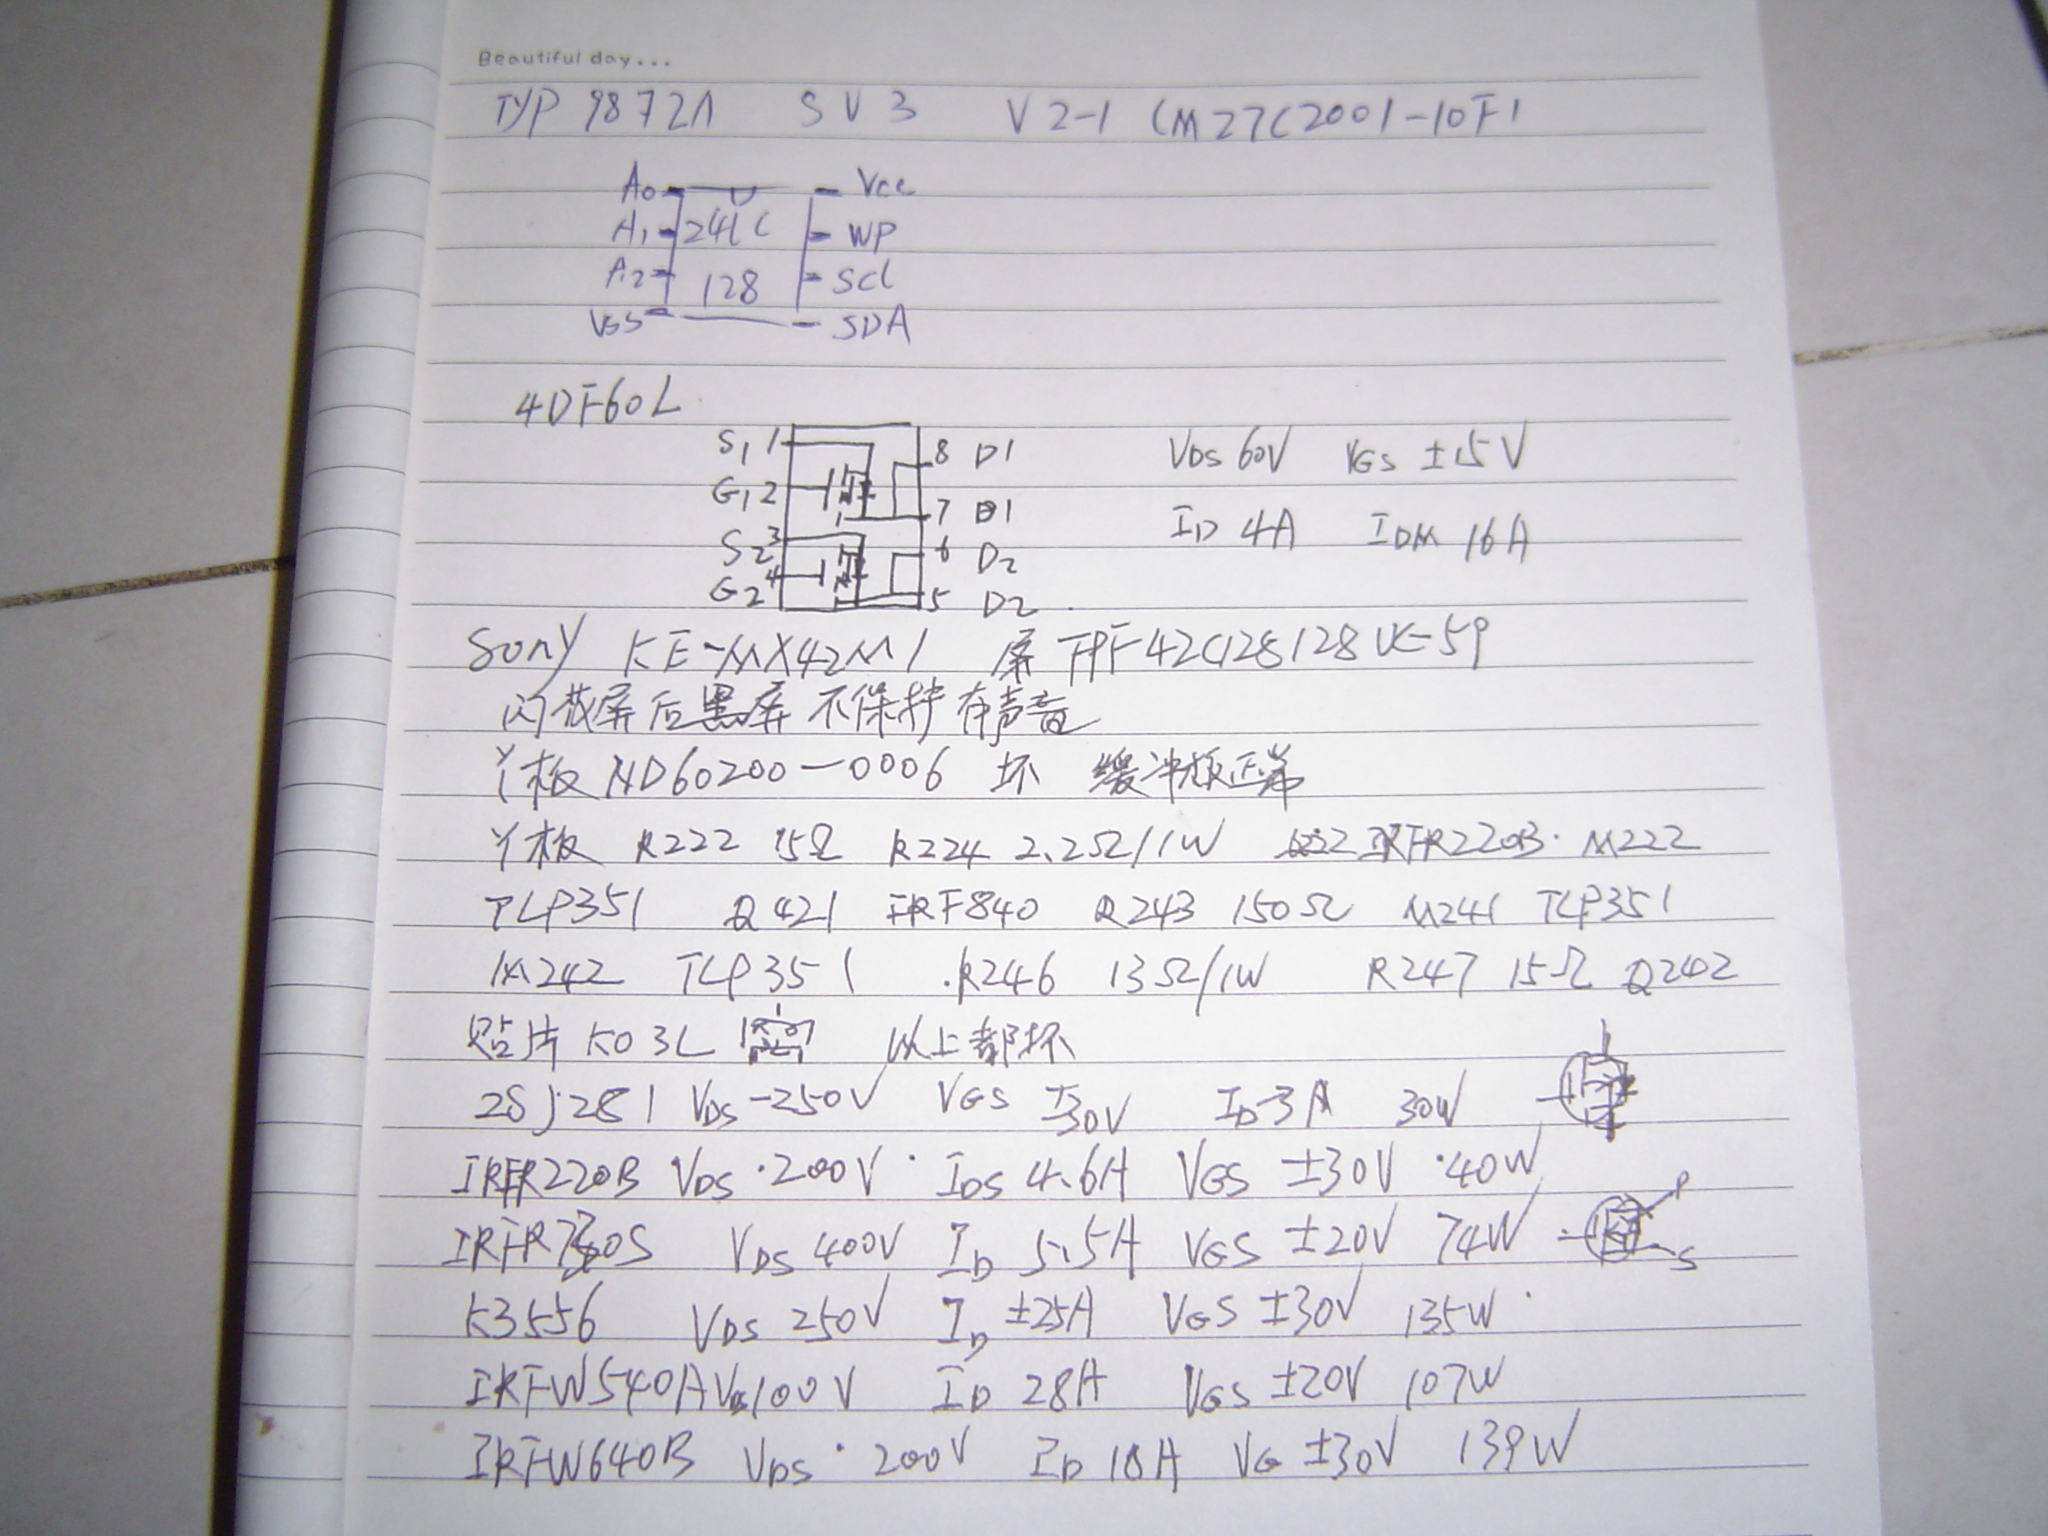 Beautiful day...
TYP 9872A SV3 V2-1 (M27C2001-10F1
A0 Vcc
A1 24LC WP
A2 128 SCL
VSS SDA
4DF60L
S1 1 8 D1 VDS 60V VGS ±15V
G1 2 7 D1 ID 4A IDM 16A
S2 3 6 D2
G2 4 5 D2
Sony KE-MX42M1 屏 FPF42C128128UE-59
闪花屏后黑屏 不保护 有声音
Y板 ND60200-0006 坏 缓冲板正常
Y板 R222 15Ω R224 2.2Ω/1W IRFR220B. M222
TLP351 Q421 IRF840 R243 150Ω M241 TLP351
M242 TLP351 .R246 13Ω/1W R247 15Ω Q242
贴片 K03L 以上都坏
2SJ281 VDS -250V VGS ±30V ID-3A 30W
IRFR220B VDS .200V . IDS 4.6A VGS ±30V .40W
VDS 400V ID 5.5A VGS ±20V 74W
S
K3556 VDS 250V ID ±25A VGS ±30V 135W
IRFW540A VDS 100V ID 28A VGS ±20V 107W
IRFW640B VDS . 200V ID 18A VG ±30V 139W